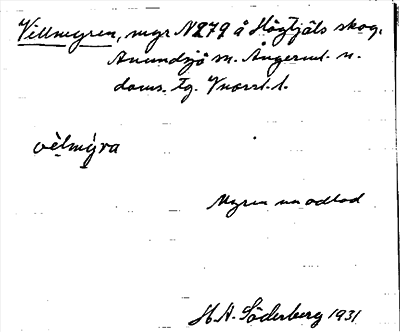 Villmyren, myr N 279 å Högtjäls skog,
Anundsjö sn. Ångerml. n.
doms. tg. Vnorrl. l.
vèlmýra
Myren nu odlad
H. A. Söderberg 1931